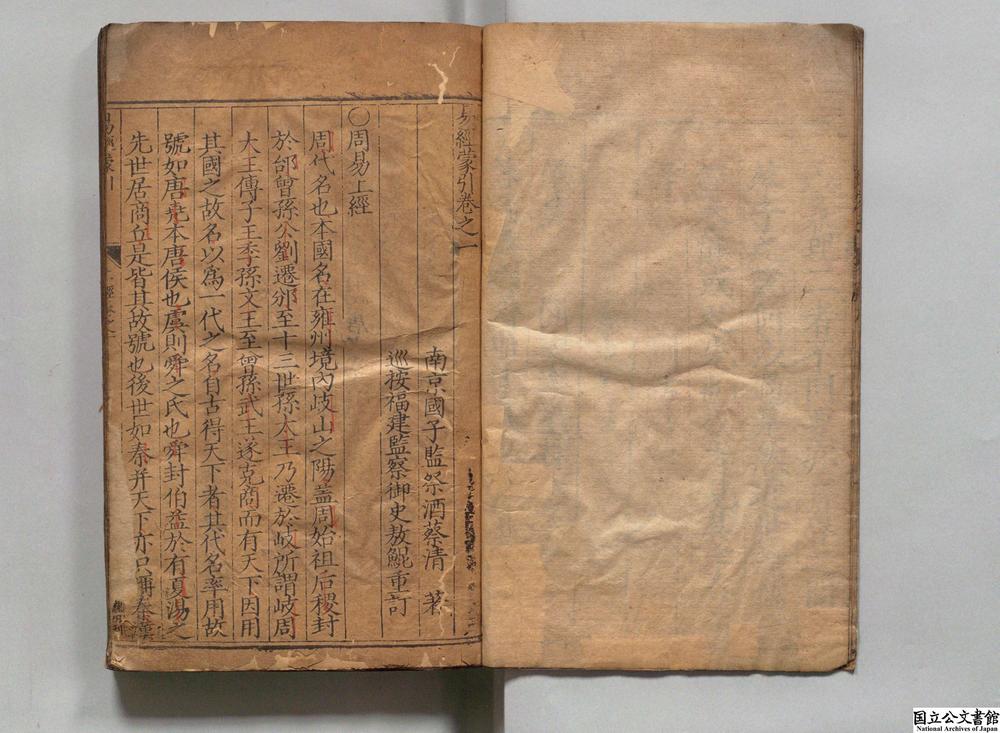 易經蒙引卷之一
南京國子監祭酒蔡清 著
巡按福建監察御史敖鯤重訂
○周易上經
周代名也本國名在雍州境內岐山之陽蓋周始祖后稷封
於邰曾孫公劉遷邠至十三世孫太王乃遷於岐所謂岐周
大王傳子王季孫文王至曾孫武王遂克商而有天下因用
其國之故名以為一代之名自古得天下者其代名率用故
號如唐堯本唐侯也虞則舜之氏也舜封伯益於有夏湯之
先世居商丘是皆其故號也後世如秦并天下亦只稱秦漢
国立公文書館
National Archives of Japan